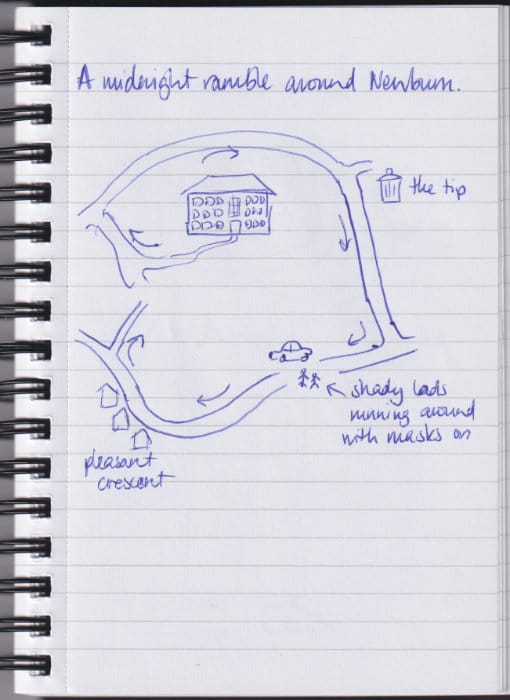 A midnight ramble around Newburn.
the tip
shady lads
running around
with masks on
pleasant
crescent